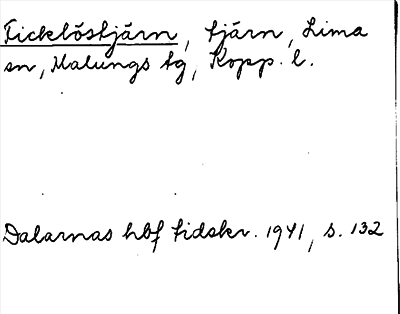 Ticklöstjärn, tjärn, Lima
sn, Malungs tg, Kopp. l.
Dalarnas hbf tidskr. 1941, s. 132